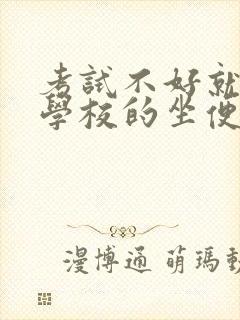 考試不好就
學校的坐便
漫博通 萌瑪動